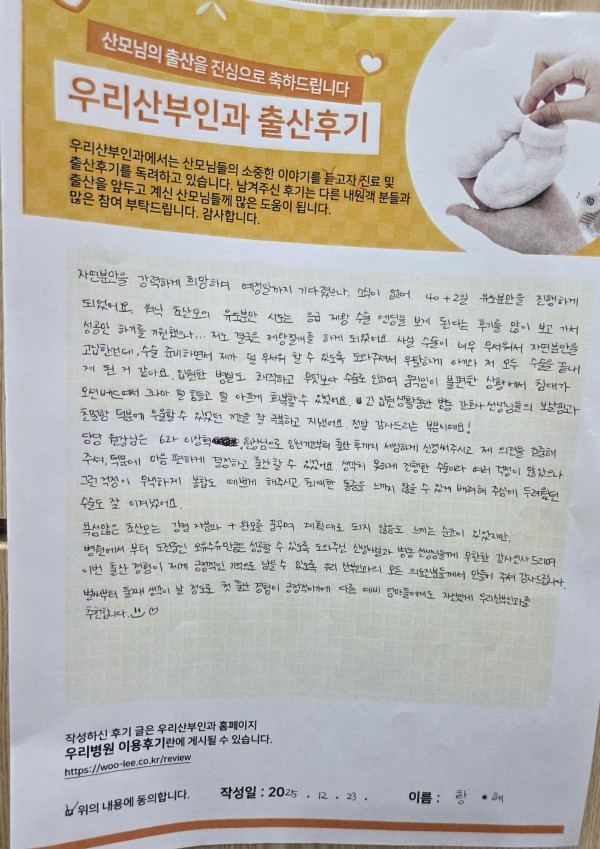 산모님의 출산을 진심으로 축하드립니다
우리산부인과 출산후기
우리산부인과에서는 산모님들의 소중한 이야기를 듣고자 진료 및
출산후기를 독려하고 있습니다. 남겨주신 후기는 다른 내원객 분들과
출산을 앞두고 계신 산모님들께 많은 도움이 됩니다.
많은 참여 부탁드립니다. 감사합니다.
자연분만을 강력하게 희망하며 예정일까지 기다렸으나, 소식이 없어 40+2일 유도분만을 진행하게
되었어요. 워낙 초산모의 유도분만 시도는 응급 제왕 수술 엔딩을 보게 된다는 후기를 많이 보고 가서
성공만 하기를 기원했으나... 저도 결국은 제왕절개를 하게 되었어요. 사실 수술이 너무 무서워서 자연분만을
고집한건데, 수술 준비하면서 제가 덜 무서워 할 수 있도록 도와주셔서 무탈하게 아가와 저 모두 수술을 끝내
게 된 거 같아요. 입원한 병실도 쾌적하고 무엇보다 수술로 인하여 움직임이 불편한 상황에서 침대가
모션베드여서 그나마 덜 힘들고 덜 아프게 회복할 수 있었어요. 긴 입원생활동안 병동 간호사 선생님들의 보살핌과
친절함 덕분에 우울할 수 있었던 기간을 잘 극복하고 지냈어요. 정말 감사드리는 부분이예요!
담당 원장님은 6과 이상혁 원장님으로 임신기간부터 출산 후까지 세심하게 신경써주시고 제 의견을 존중해
주셔, 덕분에 마음 편하게 결정하고 출산할 수 있었어요. 생각지 못하게 진행한 수술이라 여러 걱정이 많았으나
그런 걱정이 무색하게 봉합도 예쁘게 해주시고 최대한 통증을 느끼지 않을 수 있게 배려해 주심에 두려웠던
수술도 잘 이겨냈어요.
욕심많은 초산모는 강경 자분파 + 완모를 꿈꾸며 계획대로 되지 않음도 느끼는 순간이 있었지만,
병원에서 부터 도전중인 모유수유만큼은 성공할 수 있도록 도와주신 신생아실과 병동 선생님들께 무한한 감사인사 드리며
이번 출산 경험이 제게 긍정적인 기억으로 남을 수 있도록 우리 산부인과의 모든 의료진분들께서 만들어 주셔 감사드립니다.
벌써부터 둘째 생각이 날 정도로 첫 출산 경험이 긍정적이기에 다른 예비 엄마들에게도 자신있게 우리산부인과를
추천합니다. ♡
작성하신 후기 글은 우리산부인과 홈페이지
우리병원 이용후기란에 게시될 수 있습니다.
https://woo-lee.co.kr/review
위의 내용에 동의합니다. 작성일 : 2025. 12. 23. 이름 : 황 * 혜